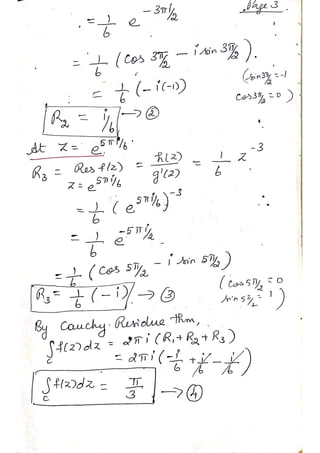 Page 3
= 1/6 e^{-3πi/2}
= 1/6 (cos 3π/2 - i sin 3π/2).
= 1/6 (-i(-1)) (sin 3π/2 = -1
cos 3π/2 = 0)
R₂ = i/6 → ②
At z = e^{5πi/6}.
R₃ = Res f(z) = h(z)/g'(z) = 1/6 z^{-3}
z = e^{5πi/6}
= 1/6 (e^{5πi/6})^{-3}
= 1/6 e^{-5πi/2}
= 1/6 (cos 5π/2 - i sin 5π/2)
R₃ = 1/6 (-i) → ③ (cos 5π/2 = 0
sin 5π/2 = 1)
By Cauchy Residue Thm,
∫_C f(z)dz = 2πi (R₁ + R₂ + R₃)
= 2πi (-i/6 + i/6 - i/6)
∫_C f(z)dz = π/3 → ④